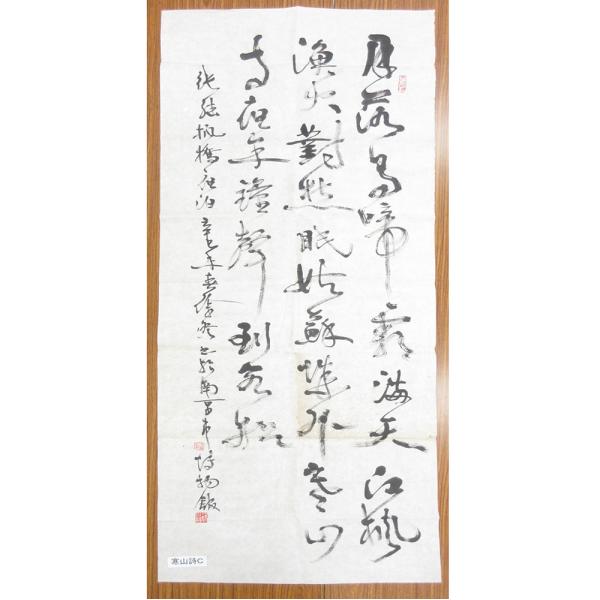 月落烏啼霜滿天江楓
漁火對愁眠姑蘇城外寒山
寺夜半鐘聲到客船
張繼楓橋夜泊辛巳年春 於南昌市博物館
寒山詩C